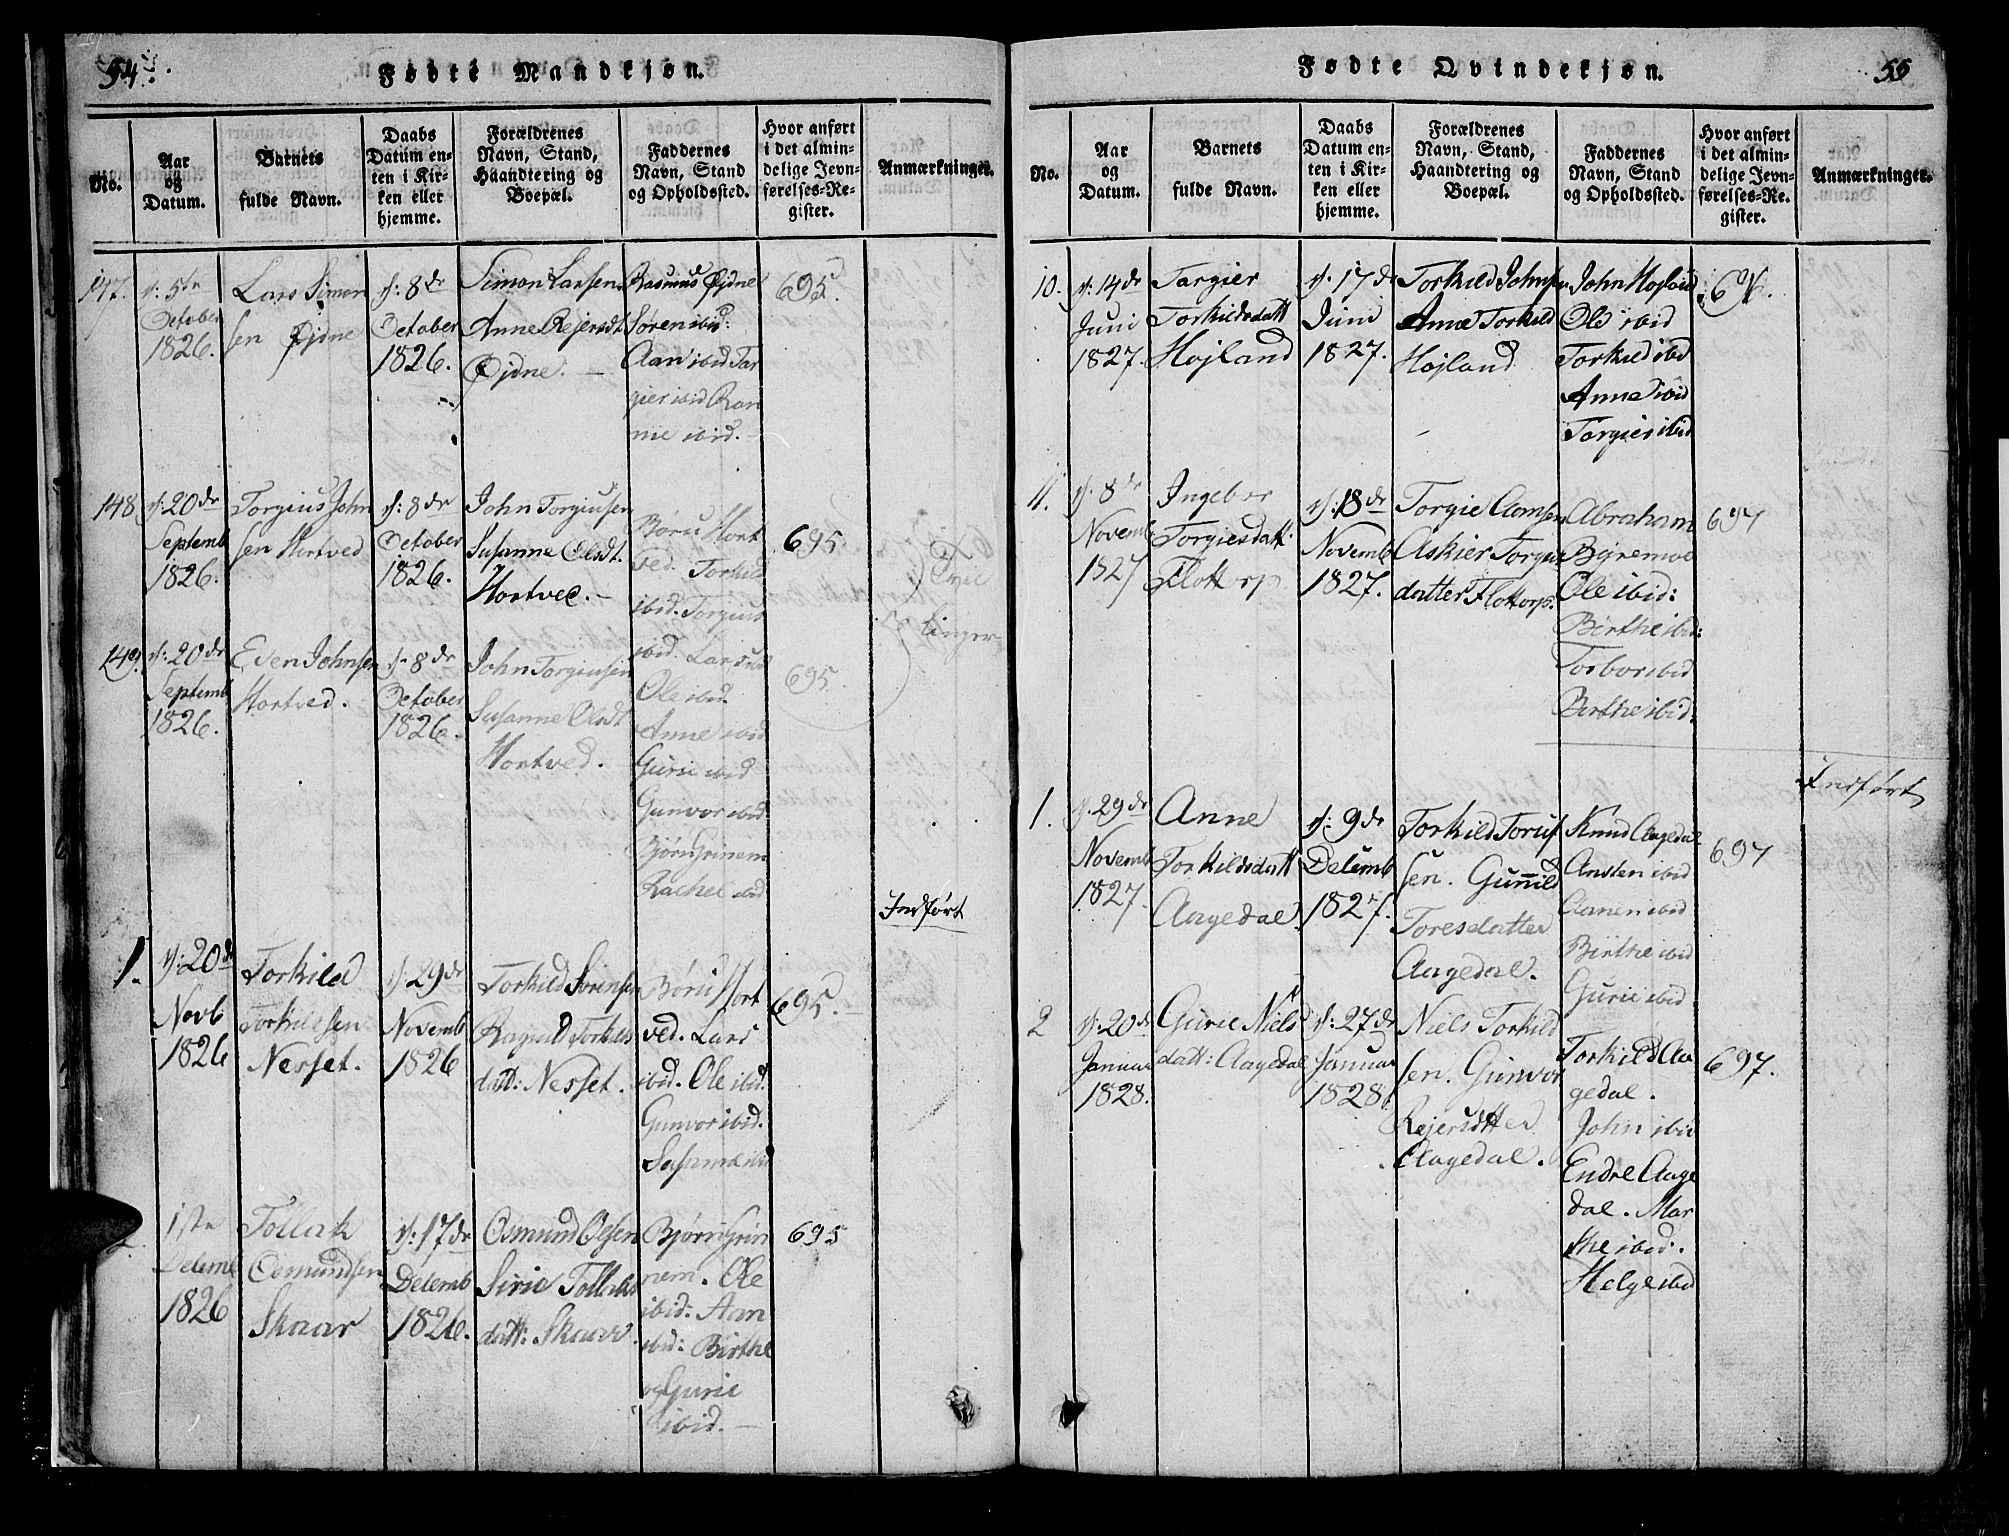 54.
Fødte Mandkjøn.
No.
Aar
og
Datum.
Barnets
fulde Navn.
Daabs
Datum en-
ten i Kir-
ken eller
hjemme.
Forældrenes
Navn, Stand,
Haandtering og
Boepæl.
Faddernes
Navn, Stand
og Opholdssted.
Hvor anført
i det almin-
delige Jevn-
førelses-Re-
gister.
Anmærkninger.
147.
d: 5te
October
1826.
Lars Simon
sen Øjdne
d: 8de
October
1826.
Simon Larsen
Anne Rejersdt
Øjdne. —
Rasmus Øjdne
Søren ibid:
Aan ibid Tar
gier ibid Ran
nie ibid. —
695.
148.
d: 20de
Septemb
1826.
Torgius John
sen Hortved
d: 8de
October
1826.
John Torgiusen
Susanne Olsdt.
Hortved. —
Børu Hort
ved. Torkild
ibid. Torgius
ibid. Lars ibid
Ole ibid.
Anne ibid
Gurie ibid
Gunvor ibid
Bjørn Grinem
Rachel ibid
695
Tvil
linger
149.
d: 20de
Septemb
1826.
Even Johnsen
Hortved.
d: 8de
October
1826.
John Torgiusen
Susanne Olsdt
Hortved.
695
Indført
1.
d: 20de
Novb
1826
Torkild
Torkildsen
Nesset.
d: 29de
Novemb
1826
Torkild Sørensen
Ragnild Torkilds
datt: Nesset.
Børu Hort
ved. Lars
ibid. Ole ibid.
Gunvor ibid.
Susanne ibid
695.
2.
1ste
Decemb
1826
Tollak
Osmundsen
Skaar
d: 17de
Decemb
1826.
Osmund Olsen
Sirie Tollaks
datt: Skaar.
Bjørn Grin
nem. Ole
ibid: Aan
ibid: Birthe
og Gurie
ibid. —
695
55
Fødte Qvindekjøn.
No.
Aar
og
Datum.
Barnets
fulde Navn.
Daabs
Datum en-
ten i Kir-
ken eller
hjemme.
Forældrenes
Navn, Stand,
Haandtering og
Boepæl.
Faddernes
Navn, Stand
og Opholdssted.
Hvor anført
i det almin-
delige Jevn-
førelses-Re-
gister.
Anmærkninger.
10.
d: 14de
Juni
1827.
Targier
Torkildsdatt
Højland
d: 17de
Juni
1827.
Torkild Johnsen
Anne Torkild
Højland
John Højland
Ole ibid
Torkild ibd
Anne ibid
Torgier ibid
11.
d: 8de
Novemb
1827
Ingebor
Torgiesdatt:
Flottorp
d: 18de
Novemb
1827.
Torgie Aamsen
Askier Torgius
datter Flottorp.
Abraham
Byremoe
Ole ibid:
Birthe ibid:
Torbor ibid
Berthe ibid.
697
Indført
1.
d. 29de
Novemb
1827.
Anne
Torkildsdatt
Aagedal.
d: 9de
Decemb
1827.
Torkild Torus
sen. Gunild
Toresdatter
Aagedal.
Knud Aagedal
Ansten ibid
Aanen ibid
Birthe ibid
Gurie ibid.
697
2
d: 20de
Januar
1828.
Gurie Niels
datt: Aagedal
d: 27de
Januar
1828.
Niels Torkild
sen. Gunvor
Rejersdtter
Aagedal.
Torkild Aa
gedal.
John ibid
Endre Aage
dal. Mar
the ibid.
Helge ibid
697.